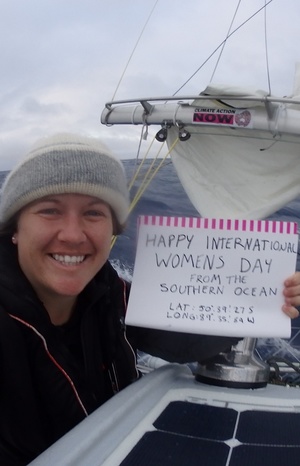 CLIMATE ACTION
NOW
HAPPY INTERNATIONAL
WOMENS DAY
FROM THE
SOUTHERN OCEAN
LAT: 50° 39' 27 S
LONG: 89° 35' 84 W